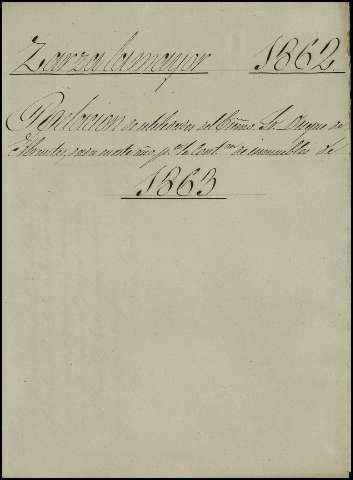 Zarza la mayor 1862
Relacion de utilidades del Exmo. Sr. Duque de
Abrantes, en este año pa. la Cont.on de inmuebles de
1863